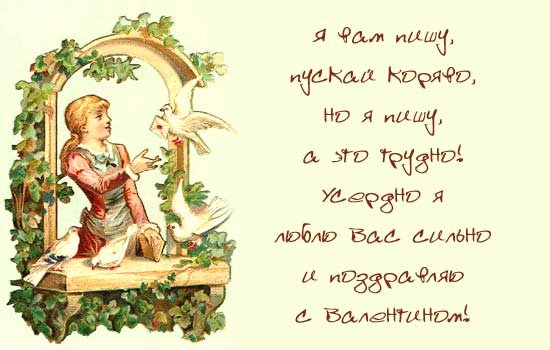 я вам пишу,
пускай коряво,
но я пишу,
а это трудно!
Усердно я
люблю Вас сильно
и поздравляю
с Валентином!